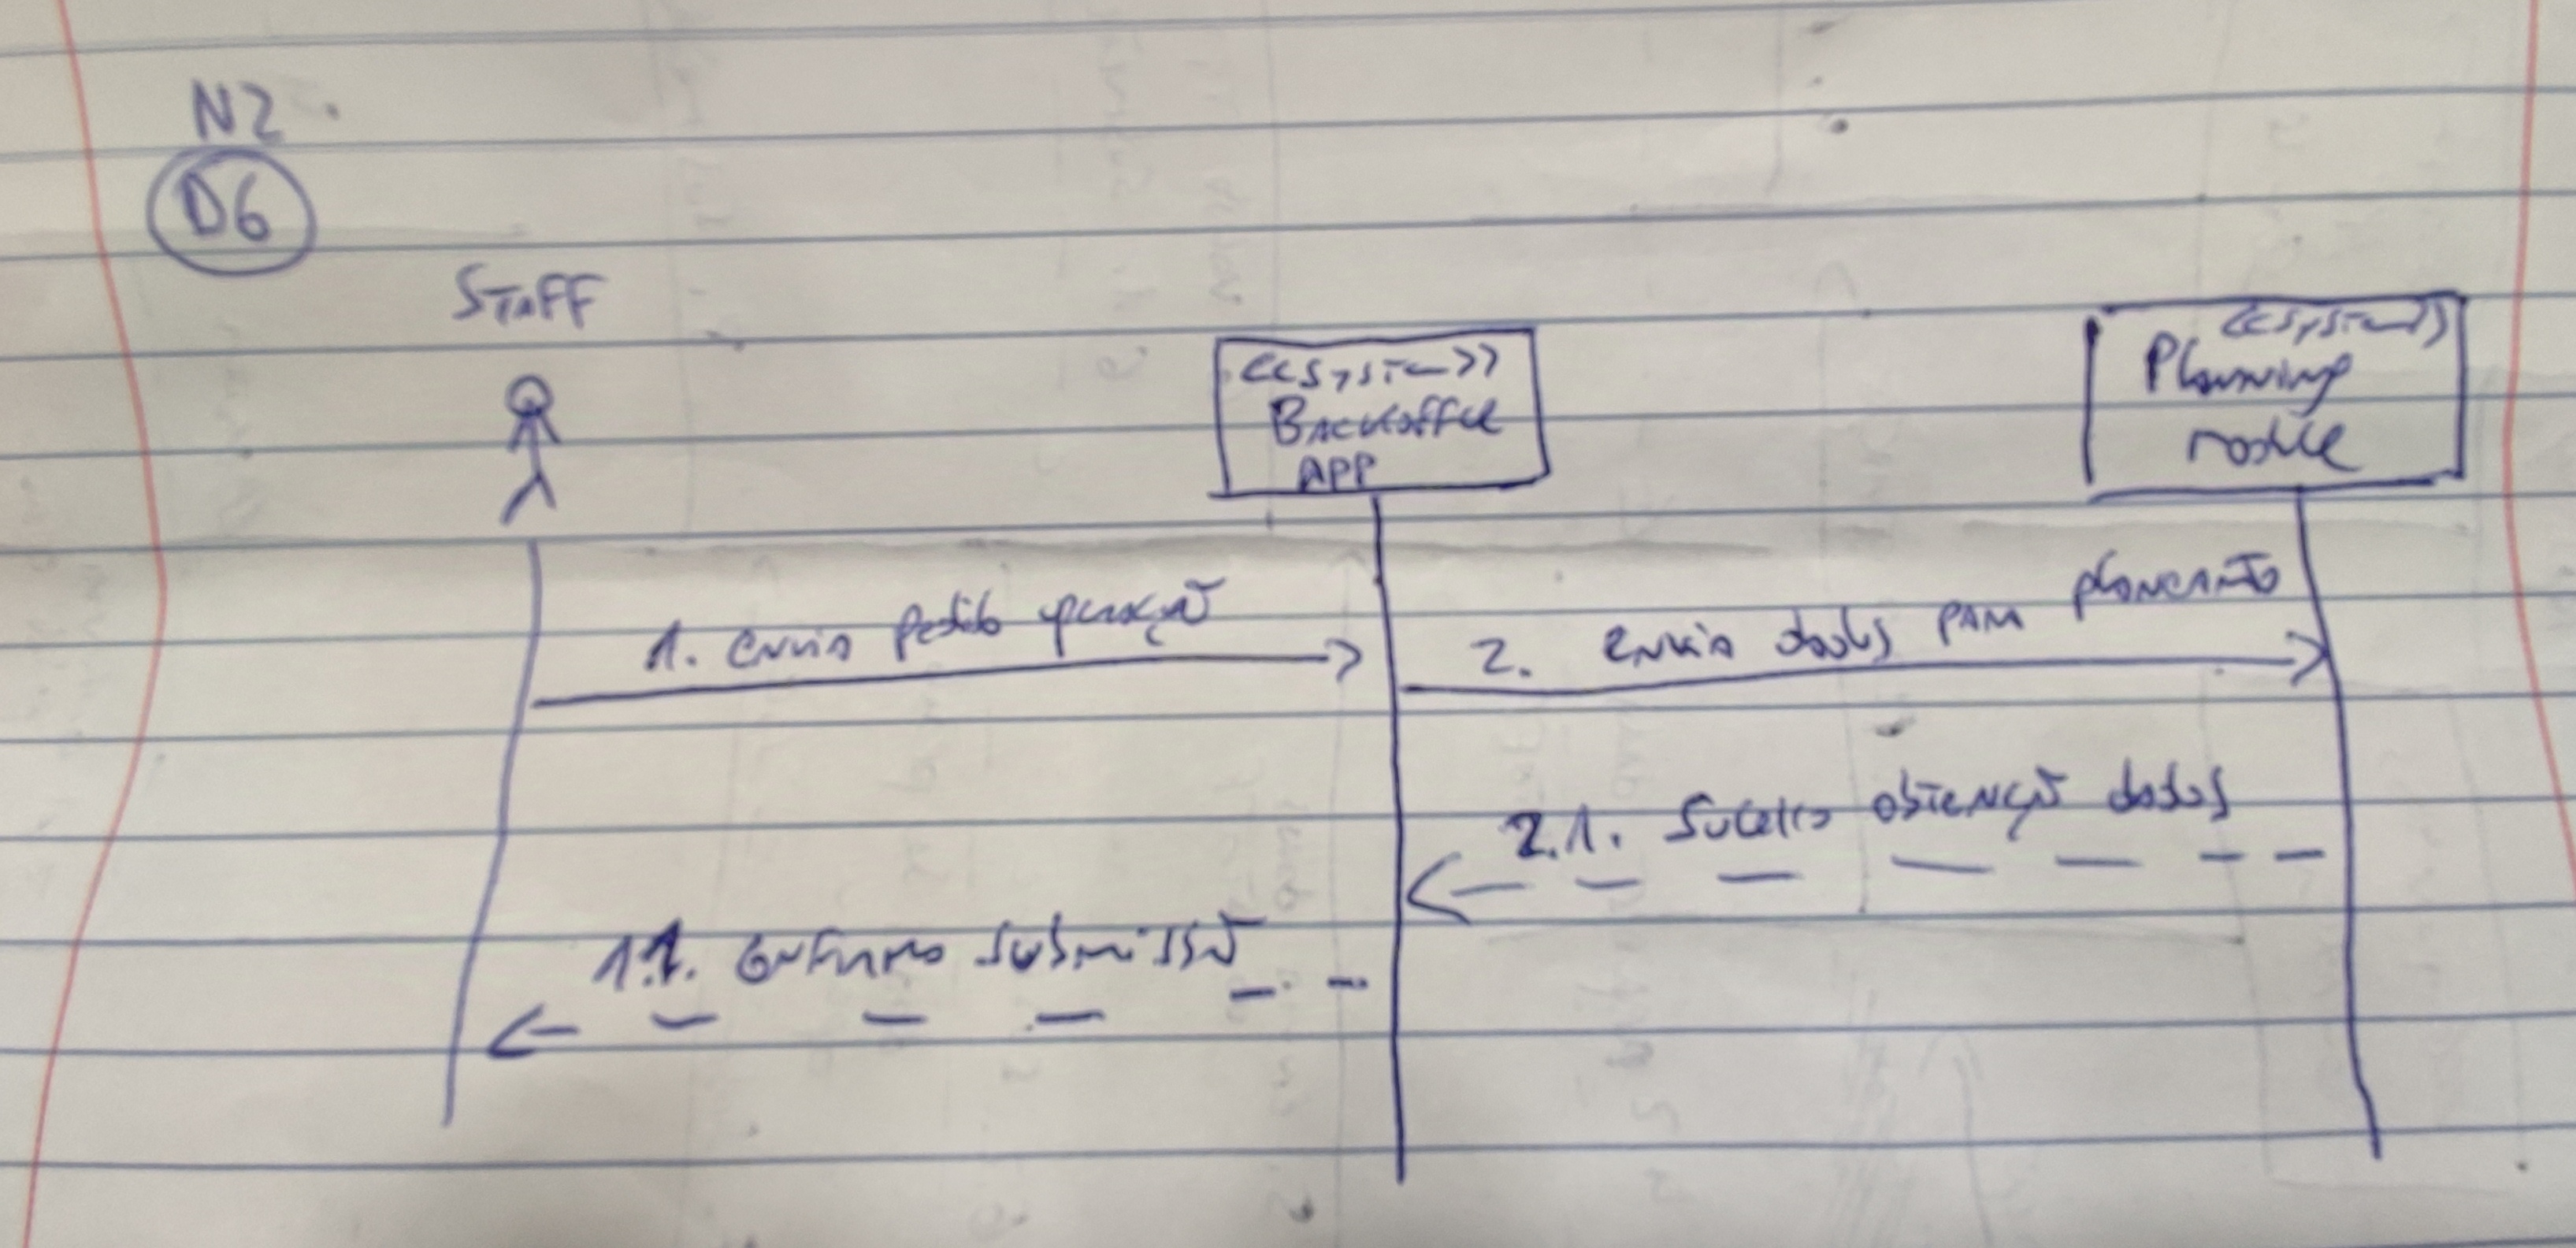 N2
D6
STAFF
<<System>>
Backoffice
APP
<<System>>
Planning
module
1. envio pedido operação
2. envio dados para
2.1. Sucesso obtenção dados
1.1. Confirmo submissão